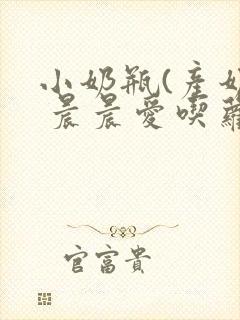 小奶瓶(產奶
晨晨愛喫蘿
官富貴